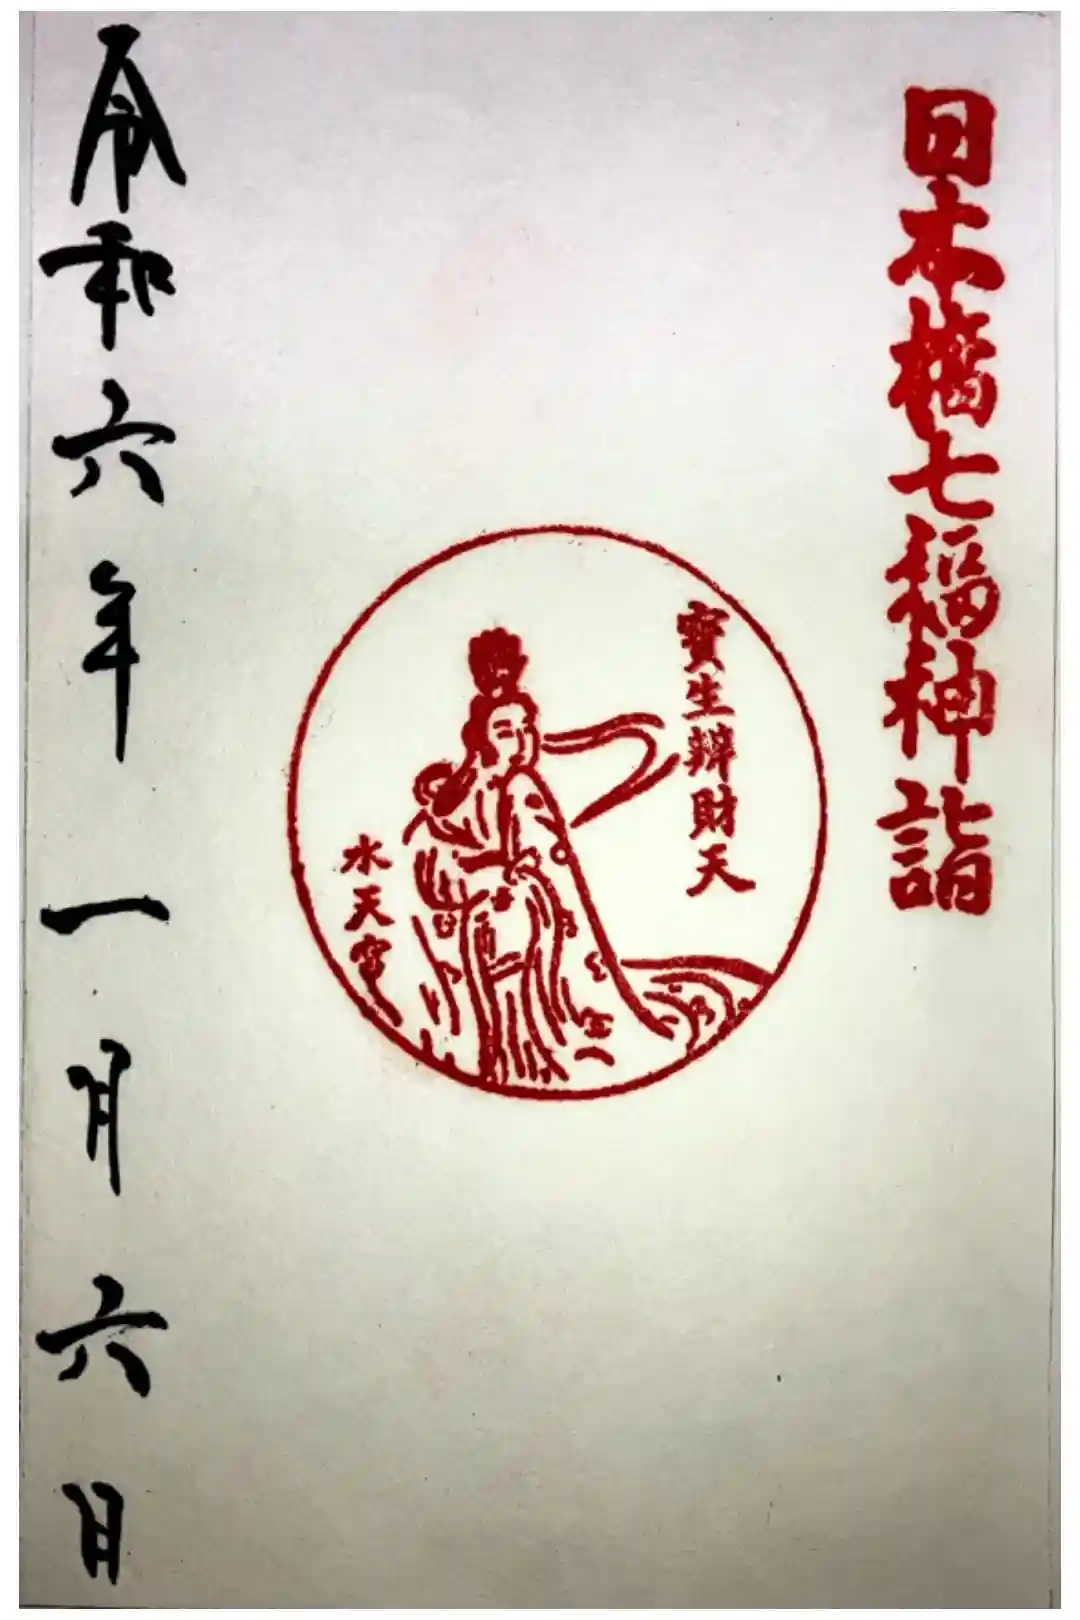 日本橋七福神詣
寶生辨財天
水天宮
令和六年一月六日